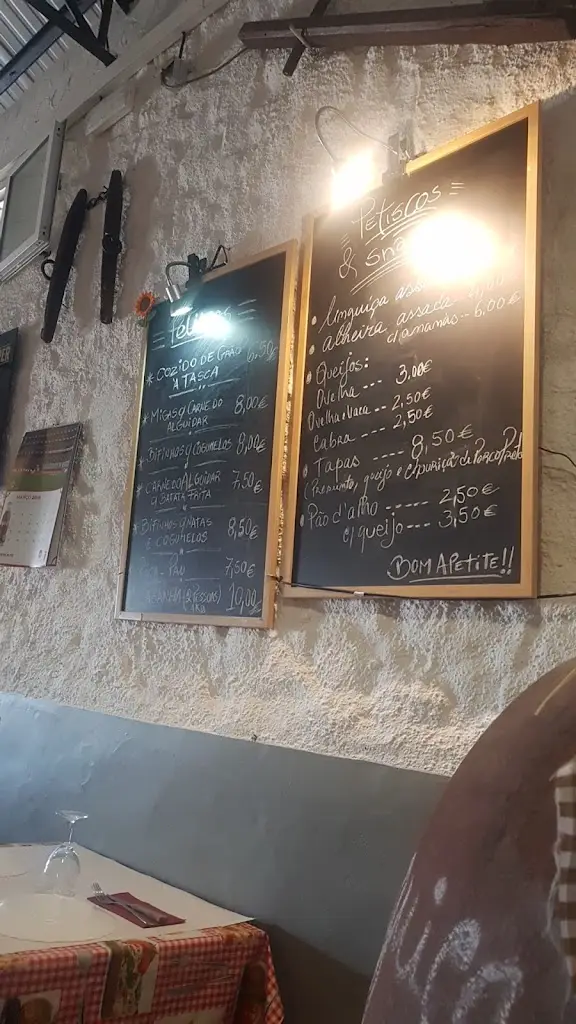 * COZIDO DE GRÃO 6,50€
À TASCA
* MIGAS C/ CARNE DO 8,00€
ALGUIDAR
* BIFINHOS C/ COGUMELOS 8,00€
* CARNE DO ALGUIDAR 7,50€
C/ BATATA FRITA
* BIFINHOS C/ NATAS 8,50€
E COGUMELOS
PAU 7,50€
(2 PESSOAS) 10,00
= Petiscos =
&
• Linguiça
• Alheira assada
c/ ananás -- 6,00€
• Queijos:
Ovelha --- 3,00€
Ovelha e Vaca -- 2,50€
Cabra --- 2,50€
• Tapas --- 8,50€
(Presunto, queijo e chouriça de Porco Preto
• Pão d'alho --- 2,50€
c/ queijo --- 3,50€
BOM APETITE!!